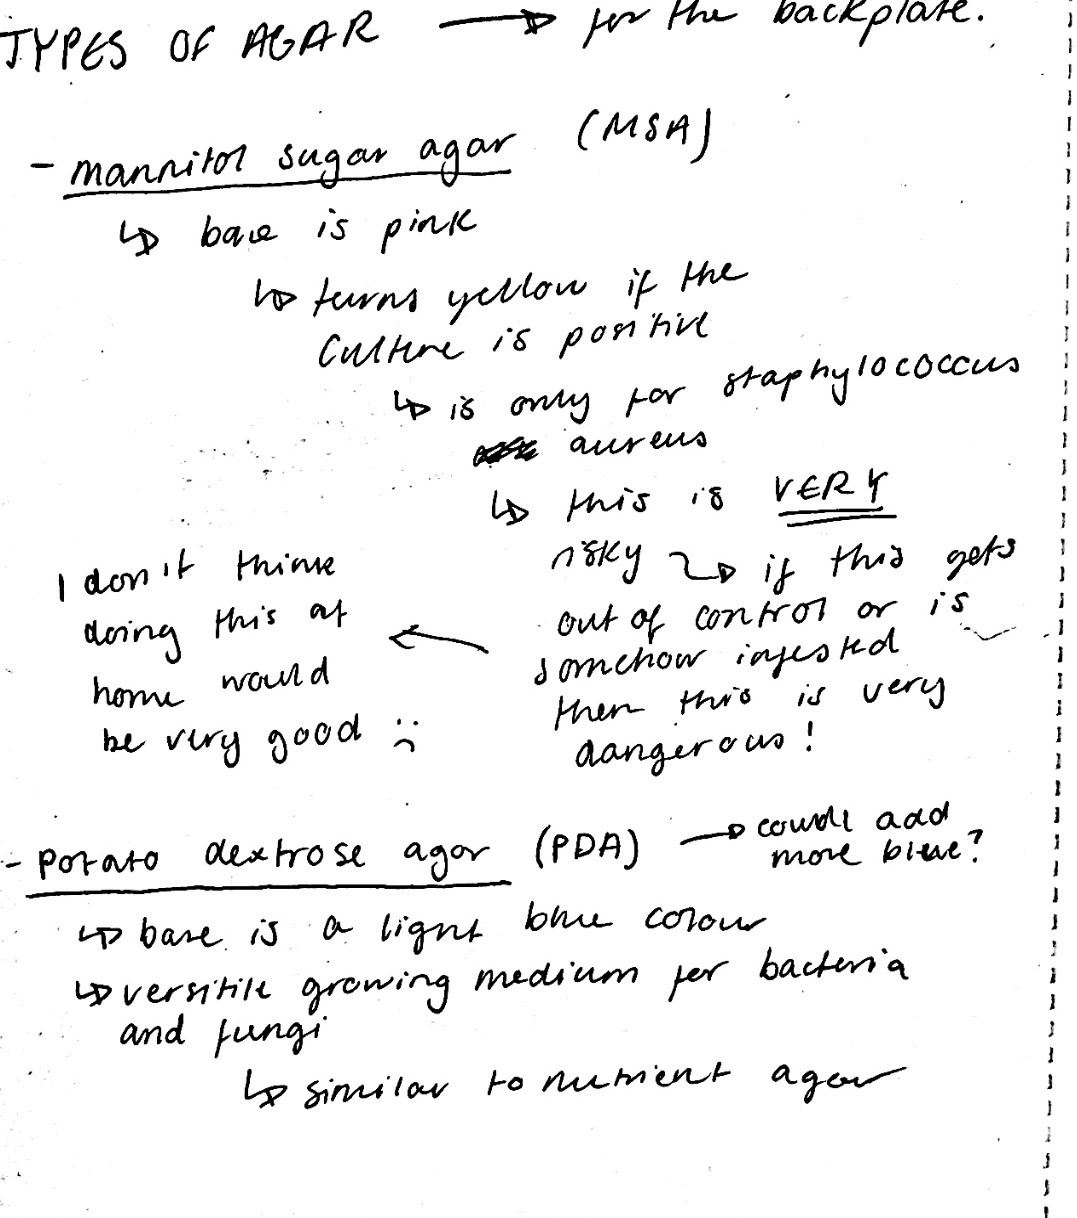 TYPES OF AGAR → for the backplate.
- mannitol sugar agar (MSA)
↳ base is pink
↳ turns yellow if the
culture is positive
↳ is only for staphylococcus
aureus
↳ this is VERY
risky → if this gets
out of control or is
somehow injested
then this is very
dangerous!
I don't think
doing this at
home would
be very good :(
- potato dextrose agar (PDA) → could add
more blue?
↳ base is a light blue colour
↳ versitile growing medium for bacteria
and fungi
↳ similar to nutrient agar